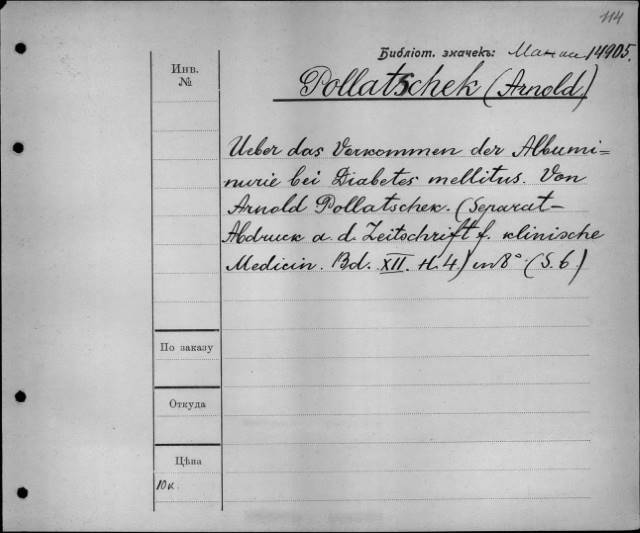 114
Библіот. значекъ: 14905.
Инв.
№
Pollatschek (Arnold)
Ueber das Vorkommen der Albumi=
nurie bei Diabetes mellitus. Von
Arnold Pollatschek. (Separat-
Abdruck a. d. Zeitschrift f. klinische
Medicin. Bd. XII. H. 4.) in 8° (S. 6.)
По заказу
Откуда
Цѣна
10 к.